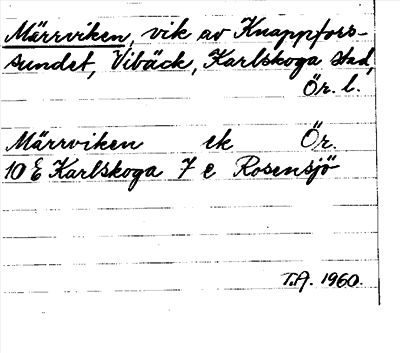 Märrviken, vik av Knappfors-
sundet, Vibäck, Karlskoga stad,
Ör. l.
Märrviken ek Ör.
10 E Karlskoga 7 e Rosensjö
T.A. 1960.